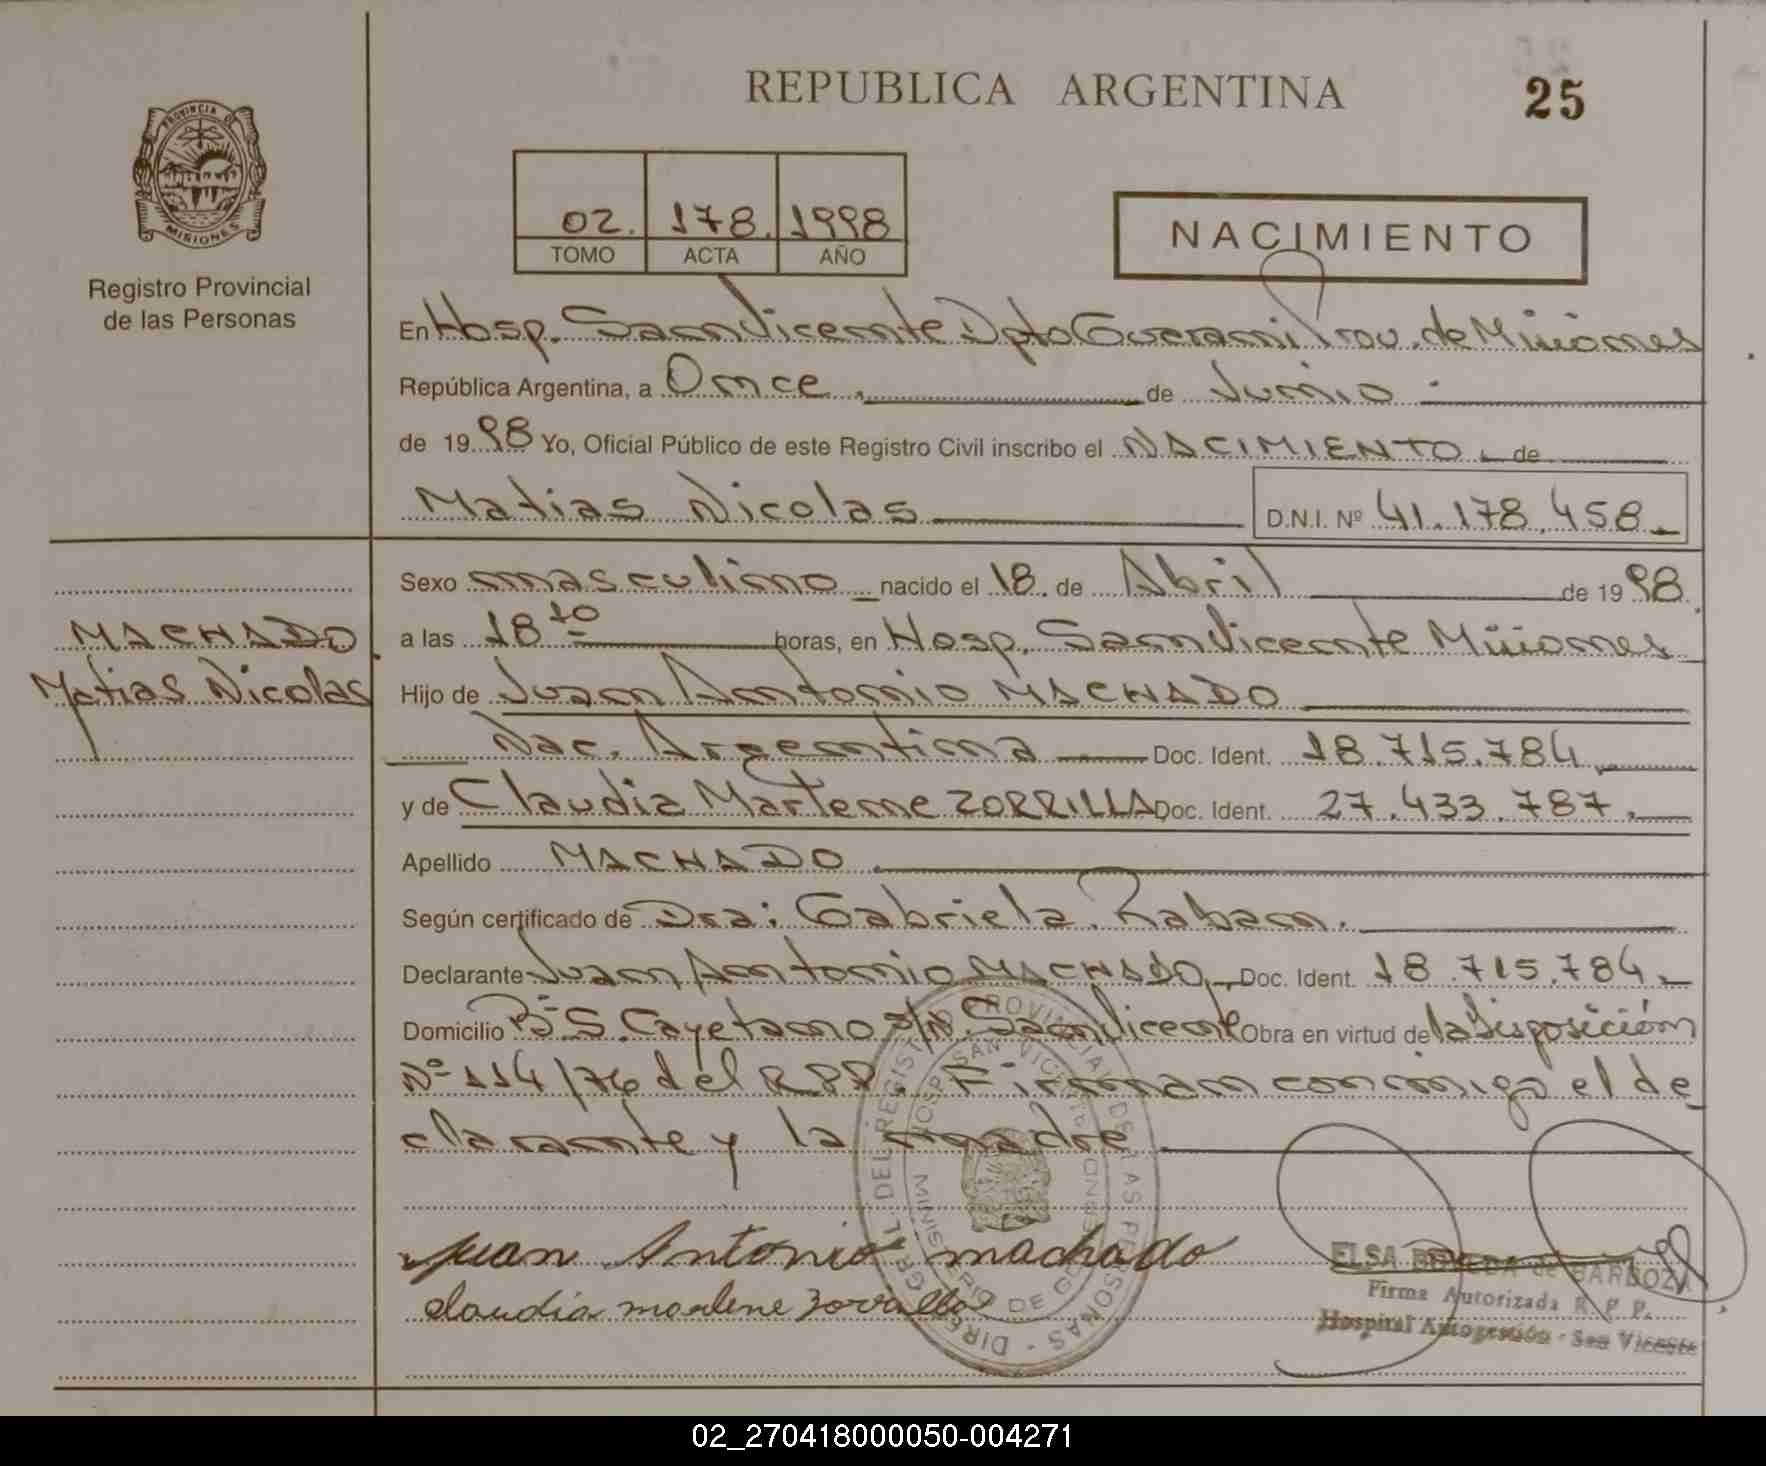 REPUBLICA ARGENTINA
25
PROVINCIA DE
MISIONES
Registro Provincial
de las Personas
02. 178. 1998
TOMO ACTA AÑO
NACIMIENTO
En Hosp. San Vicente Dpto Guarani Prov. de Misiones
República Argentina, a Once. de Junio
de 1998 Yo, Oficial Público de este Registro Civil inscribo el NACIMIENTO de
Matias Nicolas D.N.I. Nº 41.178.458.
Sexo masculino nacido el 18. de Abril de 1998
MACHADO
Matias Nicolas
a las 18 10 horas, en Hosp. San Vicente Misiones
Hijo de Juan Antonio MACHADO
Nac. Argentina Doc. Ident. 18.715.784
y de Claudia Marlene ZORRILLA Doc. Ident. 27.433.787.
Apellido MACHADO.
Según certificado de Dra: Gabriela
Declarante Juan Antonio MACHADO, Doc. Ident. 18.715.784.
Domicilio Bº S. Cayetano s/Nº San Vicente Obra en virtud de la disposición
Nº 114/76 del RPP. Firman conmigo el de
clarante y la madre
Juan Antonio machado
claudia marlene zorrilla
ELSA de BARBOZA
Firma Autorizada R. P. P.
Hospital Autogestión - San Vicente
02_270418000050-004271